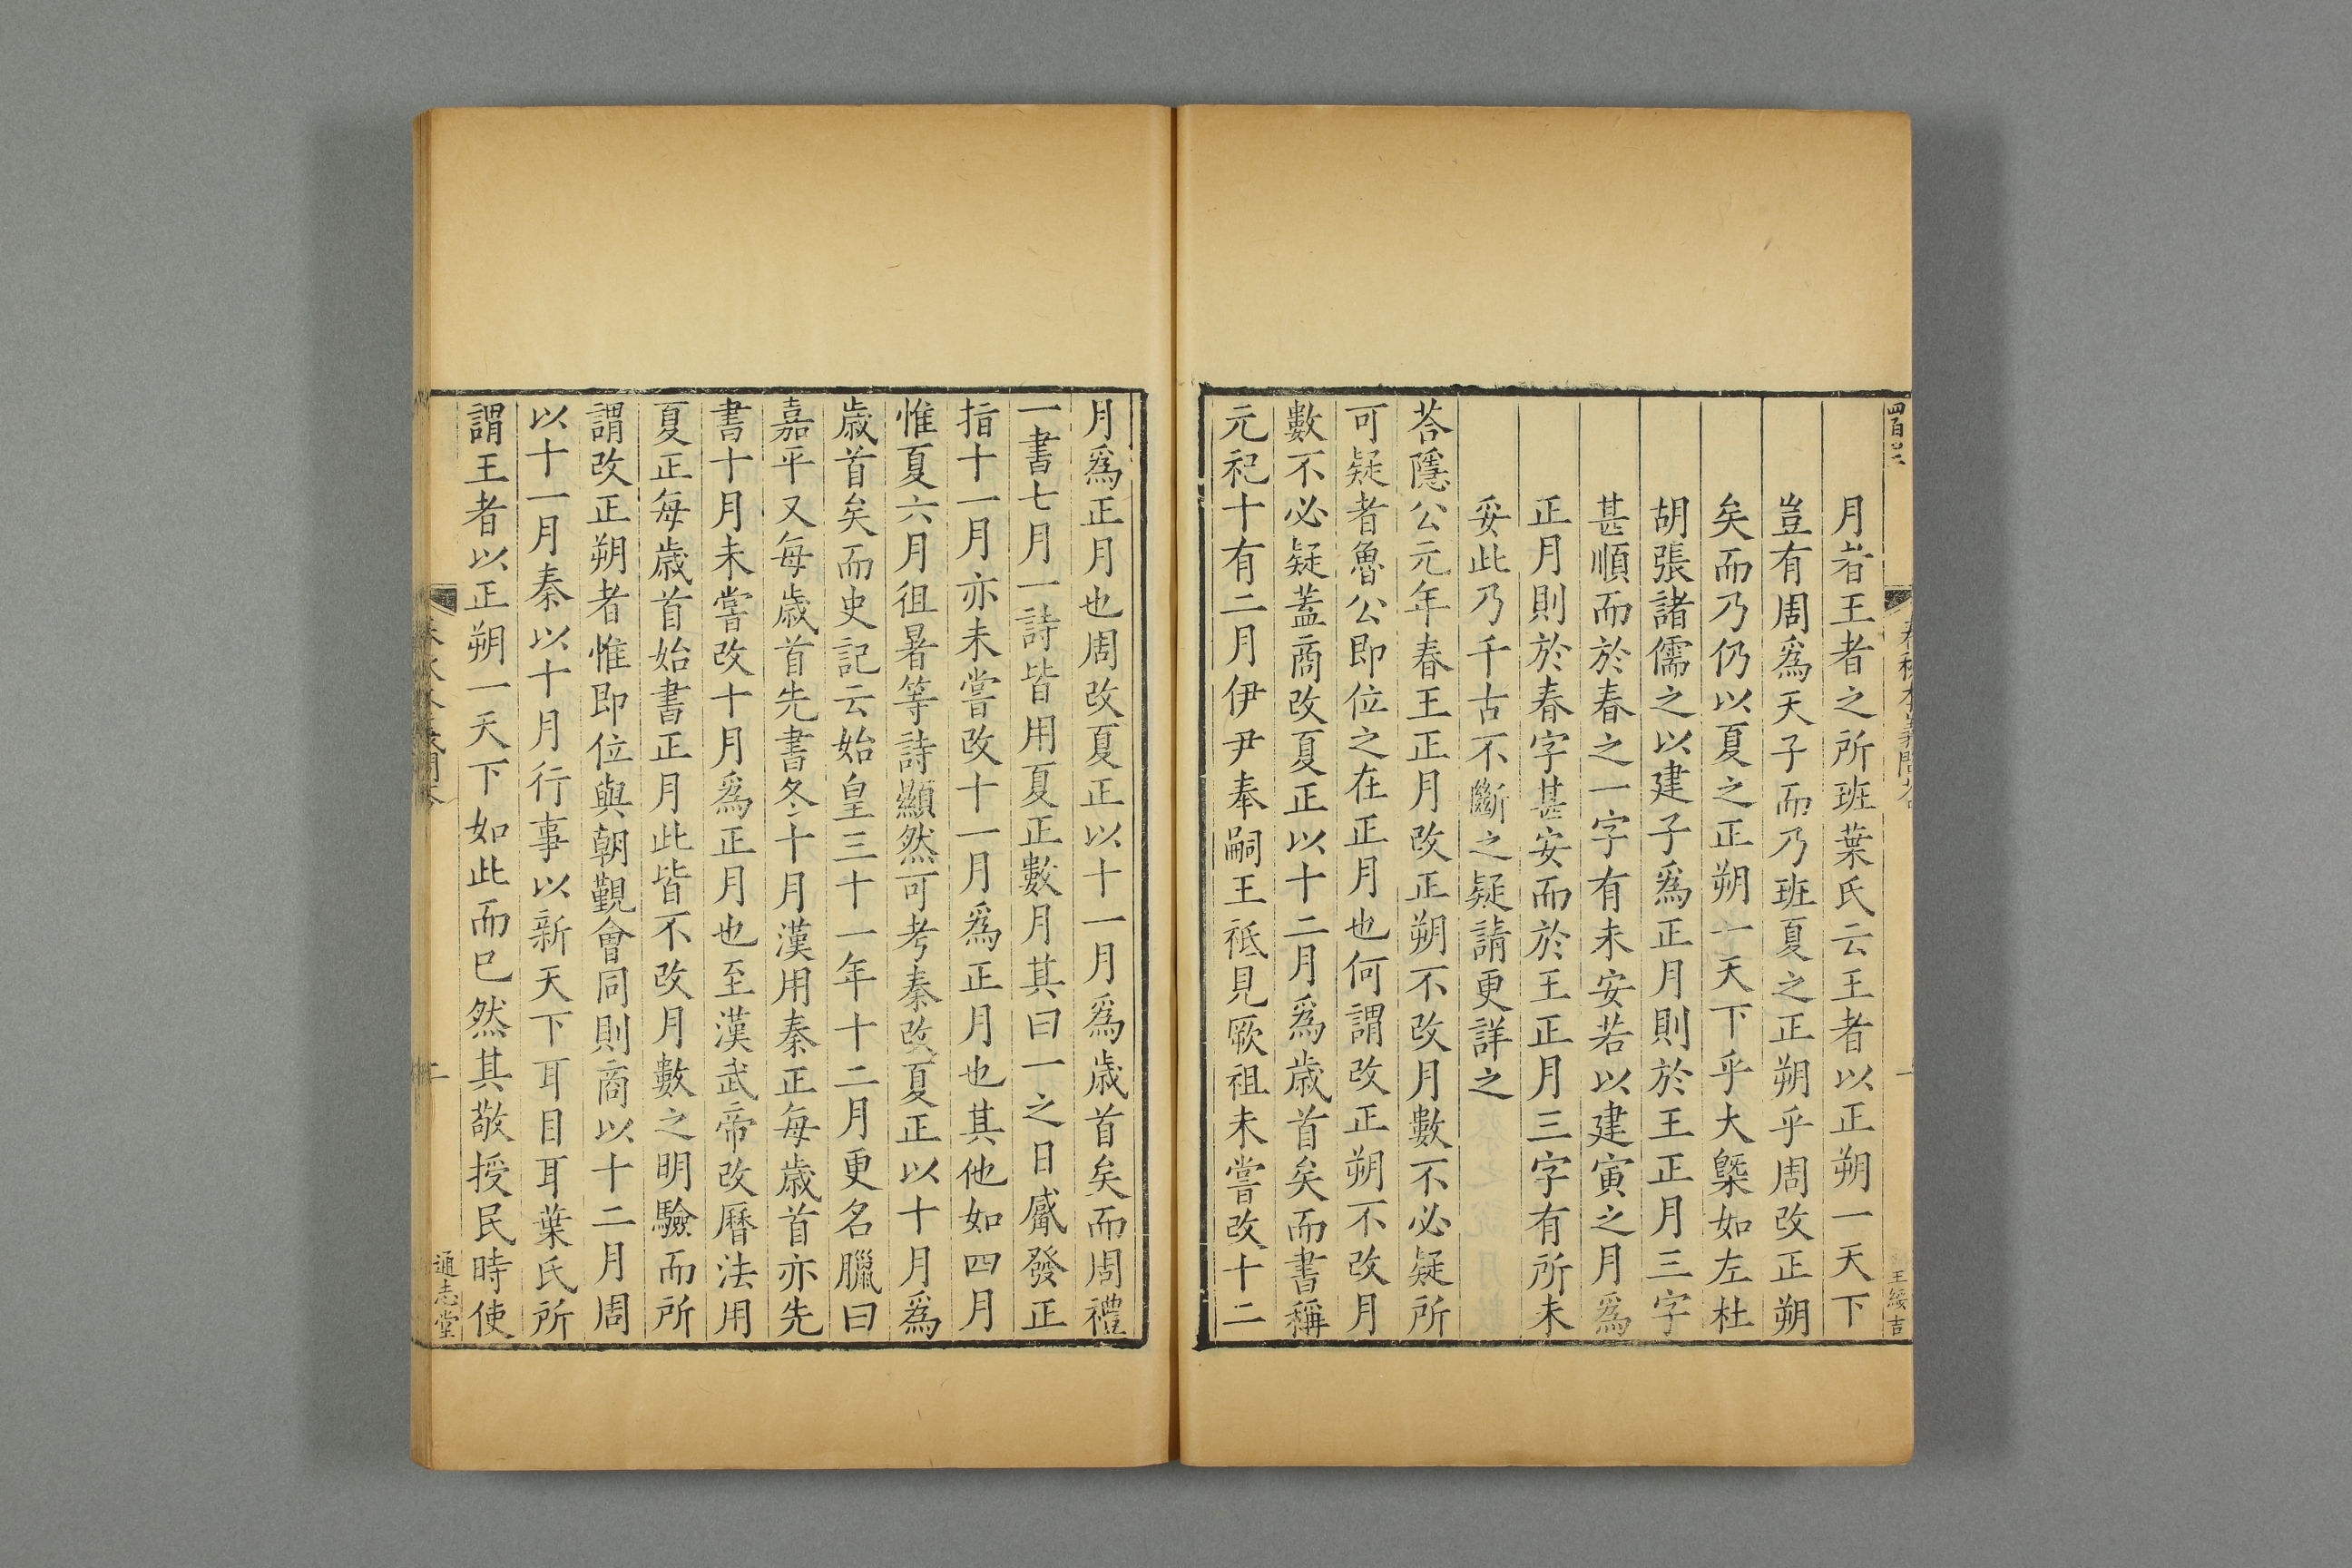 月者王者之所班葉氏云王者以正朔一天下
豈有周爲天子而乃班夏之正朔乎周改正朔
矣而乃仍以夏之正朔一天下乎大槩如左杜
胡張諸儒之以建子爲正月則於王正月三字
甚順而於春之一字有未安若以建寅之月爲
正月則於春字甚安而於王正月三字有所未
妥此乃千古不斷之疑請更詳之
荅隱公元年春王正月改正朔不改月數不必疑所
可疑者魯公即位之在正月也何謂改正朔不改月
數不必疑蓋商改夏正以十二月爲歲首矣而書稱
元祀十有二月伊尹奉嗣王祗見厥祖未嘗改十二
月爲正月也周改夏正以十一月爲歲首矣而周禮
一書七月一詩皆用夏正數月其曰一之日觱發正
指十一月亦未嘗改十一月爲正月也其他如四月
惟夏六月徂暑等詩顯然可考秦改夏正以十月爲
歲首矣而史記云始皇三十一年十二月更名臘曰
嘉平又每歲首先書冬十月漢用秦正每歲首亦先
書十月未嘗改十月爲正月也至漢武帝改曆法用
夏正每歲首始書正月此皆不改月數之明驗而所
謂改正朔者惟即位與朝覲會同則商以十二月周
以十一月秦以十月行事以新天下耳目耳葉氏所
謂王者以正朔一天下如此而已然其敬授民時使
通志堂